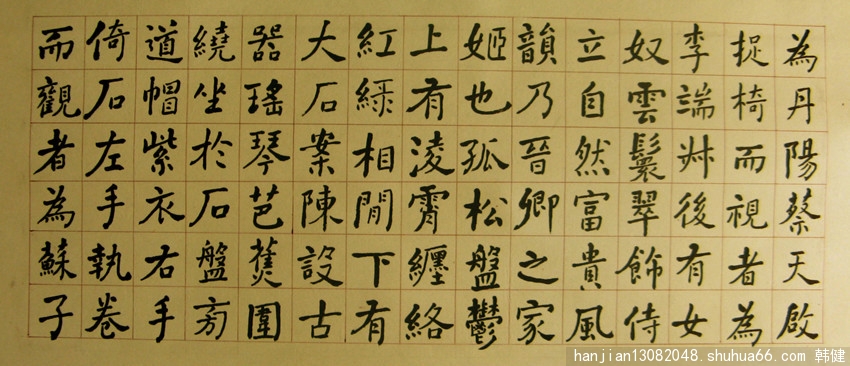 為丹陽蔡天啟
捉椅而視者為
李端叔後有女
奴雲鬟翠飾侍
立自然富貴風
韻乃晉卿之家
姬也孤松盤鬱
上有淩霄纏絡
紅綠相閒下有
大石案陳設古
器瑤琴芭蕉圍
繞坐於石盤旁
道帽紫衣右手
倚石左手執卷
而觀者為蘇子
hanjian13082048.shuhua66.com 韩健